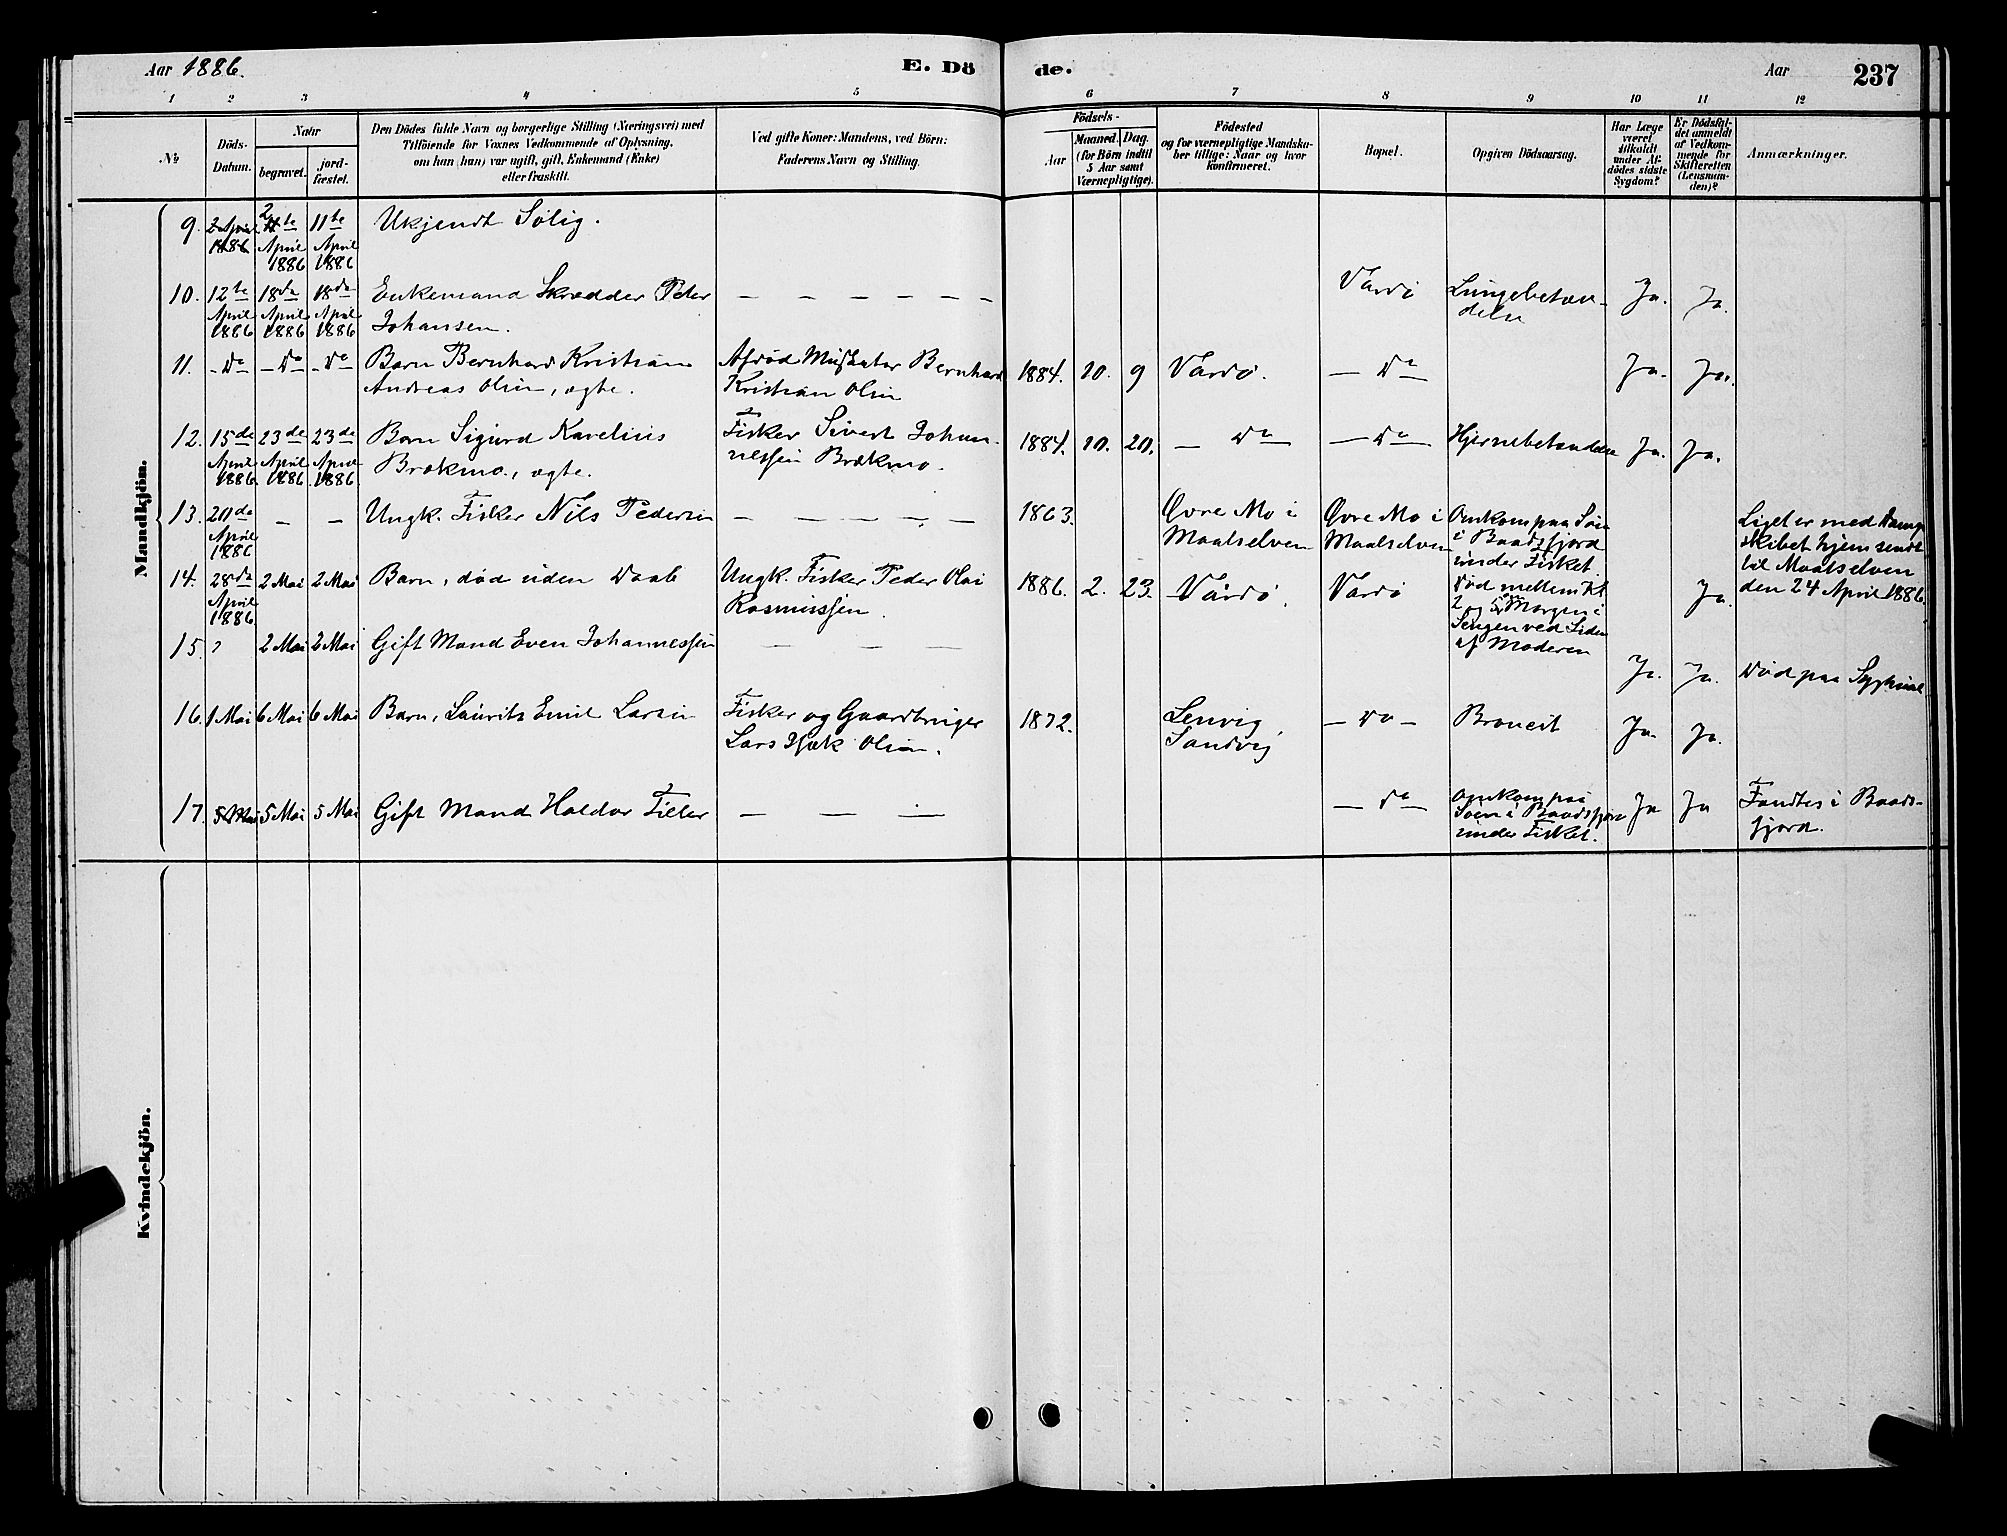 Aar 1886.
E. Dö
de.
Aar
237
1 2 3 4 5 6 7 8 9 10 11 12
No
Döds-
Datum.
Naar
begravet.
jord-
fæstet.
Den Dödes fulde Navn og borgerlige Stilling (Næringsvei) med
Tilföiende for Voxnes Vedkommende af Oplysning,
om han (hun) var ugift, gift, Enkemand (Enke)
eller fraskilt.
Ved gifte Koner: Mandens, ved Börn:
Faderens Navn og Stilling.
Födsels-
Aar
Maaned.
Dag.
(for Börn indtil
5 Aar samt
Værnepligtige).
Födested
og for værnepligtige Mandska-
ber tillige: Naar og hvor
konfirmeret.
Bopæl.
Opgiven Dödsaarsag.
Har Læge
været
tilkaldt
under Af-
dödes sidste
Sygdom?
Er Dödsfal-
det anmeldt
af Vedkom-
mende for
Skifteretten
(Lensman-
den)?
Anmærkninger.
Mandkjön.
9. 2 April 1886 2 April 1886 11te April 1886 Ukjendt Sølig.
10. 12te April 1886 18de April 1886 18de April 1886 Enkemand Skrædder Peter — — — — — — Vardø Lungebetæn- Ja. Ja.
Johansen. delse
11. - Do - Do - Do Barn Bernhard Kristian Afdød Bernhard 1884. 10. 9 Vardø. — Do — Ja. Ja.
Andreas Olsen, ægte. Kristian Olsen
12. 15de April 1886 23de April 1886 23de April 1886 Barn Sigurd Karelius Fisker Sivert Johan- 1884. 10. 20. — Do — — Do — Hjernebetændelse Ja. Ja.
Brækmo., ægte. nessen Brækmo.
13. 20de April 1886 — — Ungk. Fisker Nils Pedersen — — — — — 1863. Øvre Mo i Øvre Mo i Omkom paa Søen Liget er med Damp-
Maalselven Maalselven i Baadsfjord skibet hjemsendt
under Fisket. til Maalselven
den 24 April 1886.
14. 28de April 1886 2 Mai 2 Mai Barn, død uden Daab Ungk. Fisker Peder Olai 1886. 2. 23. Vardø. Vardø Død mellem Kl. Ja.
Rasmussen. 2 og 5 Morgen i
Sengen ved Siden
af Moderen
15. ? 2 Mai 2 Mai Gift Mand Even Johannessen — — — Ja. Ja. Død paa
16. 1 Mai 6 Mai 6 Mai Barn, Laurits Emil Larsen Fisker og Gaardbruger 1872. Lenvig — Do — Ja. Ja.
Lars Olsen. Sandvig
17. 5 Mai 5 Mai 5 Mai Gift Mand Haldor Tiller — — — — Do — Omkom paa Ja Ja Fandtes i Baads-
Søen i Baadsfjord fjord.
under Fisket.
Kvindekjön.